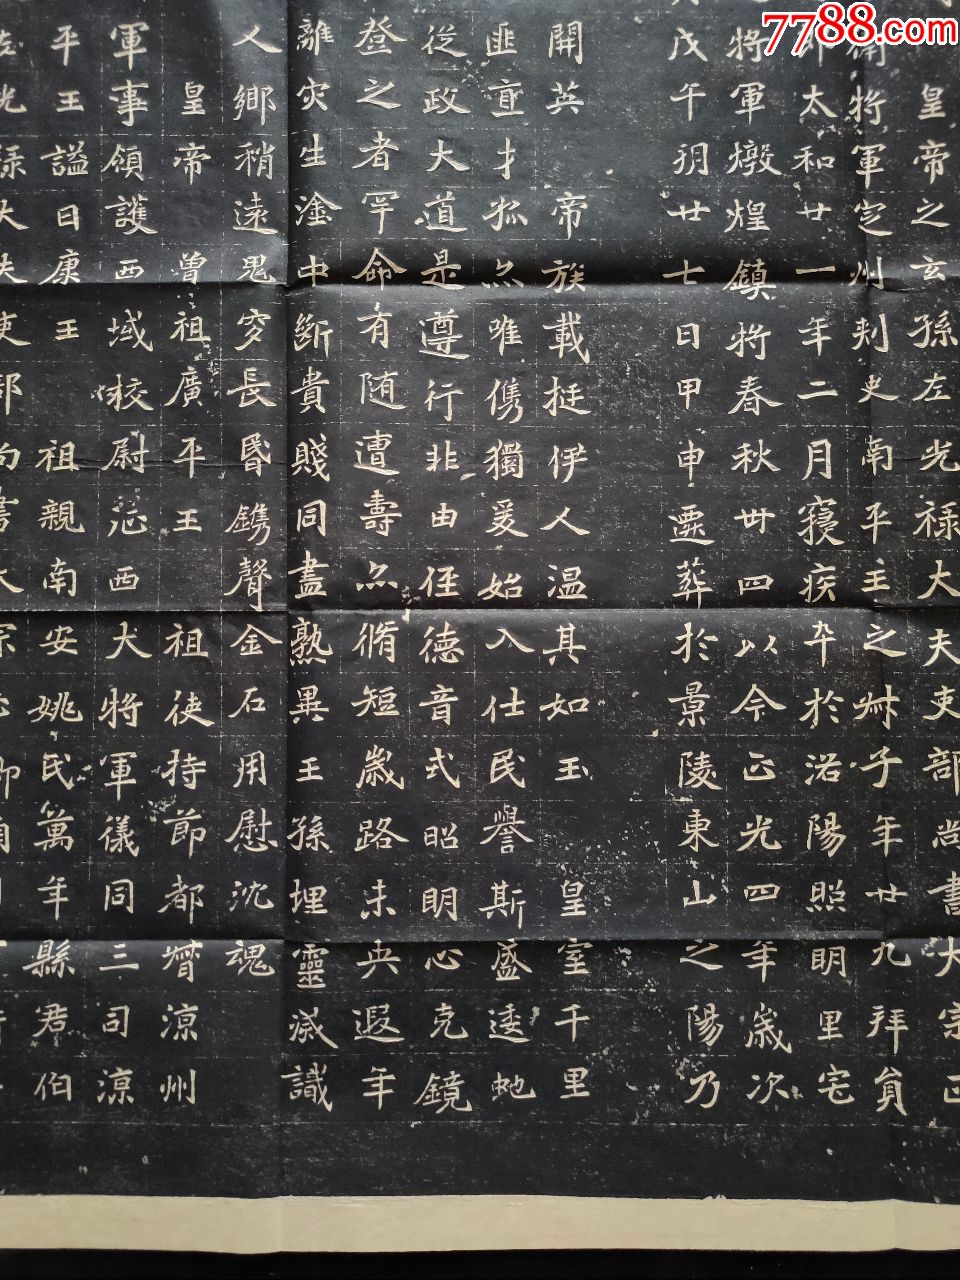 7788.com
皇帝之玄孫左光祿大夫吏部尚書大宗正
將軍定州刾史南平王之子年廿九拜員
太和廿一年二月寑疾卒於洛陽照明里宅
將軍燉煌鎮將春秋卌四以今正光四年歲次
戊午玥廿七日甲申遷葬於景陵東山之陽乃
開英帝族載挺伊人温其如玉皇室千里
匪直才孤亦唯儁獨爰始入仕民譽斯盛逶虵
從政大道是遵行非由侄德音式昭明心克鏡
登之者罕命有随遭壽亦脩短歲路未央遐年
離灾生塗中斷貴賤同盡熟異王孫埋靈滅識
人鄉稍遠鬼穸長昬鐫聲金石用慰沈魂
皇帝曾祖廣平王祖使持節都督涼州
軍事領護西域校尉西大將軍儀同三司涼
平王謚曰康王祖親南安姚民萬年縣君伯